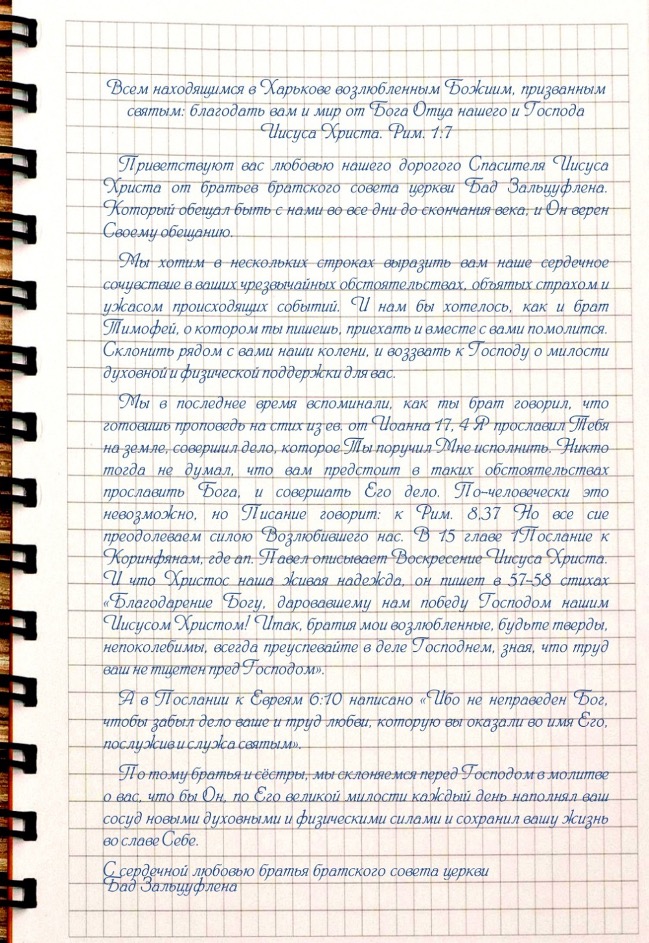 Всем находящимся в Харькове возлюбленным Божиим, призванным
святым: благодать вам и мир от Бога Отца нашего и Господа
Иисуса Христа. Рим. 1:7
Приветствуют вас любовью нашего дорогого Спасителя Иисуса
Христа от братьев братского совета церкви Бад Зальцуфлена.
Который обещал быть с нами во все дни до скончания века, и Он верен
Своему обещанию.
Мы хотим в нескольких строках выразить вам наше сердечное
сочувствие в ваших чрезвычайных обстоятельствах, объятых страхом и
ужасом происходящих событий. И нам бы хотелось, как и брат
Тимофей, о котором ты пишешь, приехать и вместе с вами помолится.
Склонить рядом с вами наши колени, и воззвать к Господу о милости
духовной и физической поддержки для вас.
Мы в последнее время вспоминали, как ты брат говорил, что
готовишь проповедь на стих из ев. от Иоанна 17, 4 Я прославил Тебя
на земле, совершил дело, которое Ты поручил Мне исполнить. Никто
тогда не думал, что вам предстоит в таких обстоятельствах
прославить Бога, и совершать Его дело. По-человечески это
невозможно, но Писание говорит: к Рим. 8,37 Но все сие
преодолеваем силою Возлюбившего нас. В 15 главе 1Послание к
Коринфянам, где ап. Павел описывает Воскресение Иисуса Христа.
И что Христос наша живая надежда, он пишет в 57-58 стихах
«Благодарение Богу, даровавшему нам победу Господом нашим
Иисусом Христом! Итак, братия мои возлюбленные, будьте тверды,
непоколебимы, всегда преуспевайте в деле Господнем, зная, что труд
ваш не тщетен пред Господом».
А в Послании к Евреям 6:10 написано «Ибо не неправеден Бог,
чтобы забыл дело ваше и труд любви, которую вы оказали во имя Его,
послужив и служа святым».
По тому братья и сёстры, мы склоняемся перед Господом в молитве
о вас, что бы Он, по Его великой милости каждый день наполнял ваш
сосуд новыми духовными и физическими силами и сохранил вашу жизнь
во славе Себе.
С сердечной любовью братья братского совета церкви
Бад Зальцуфлена